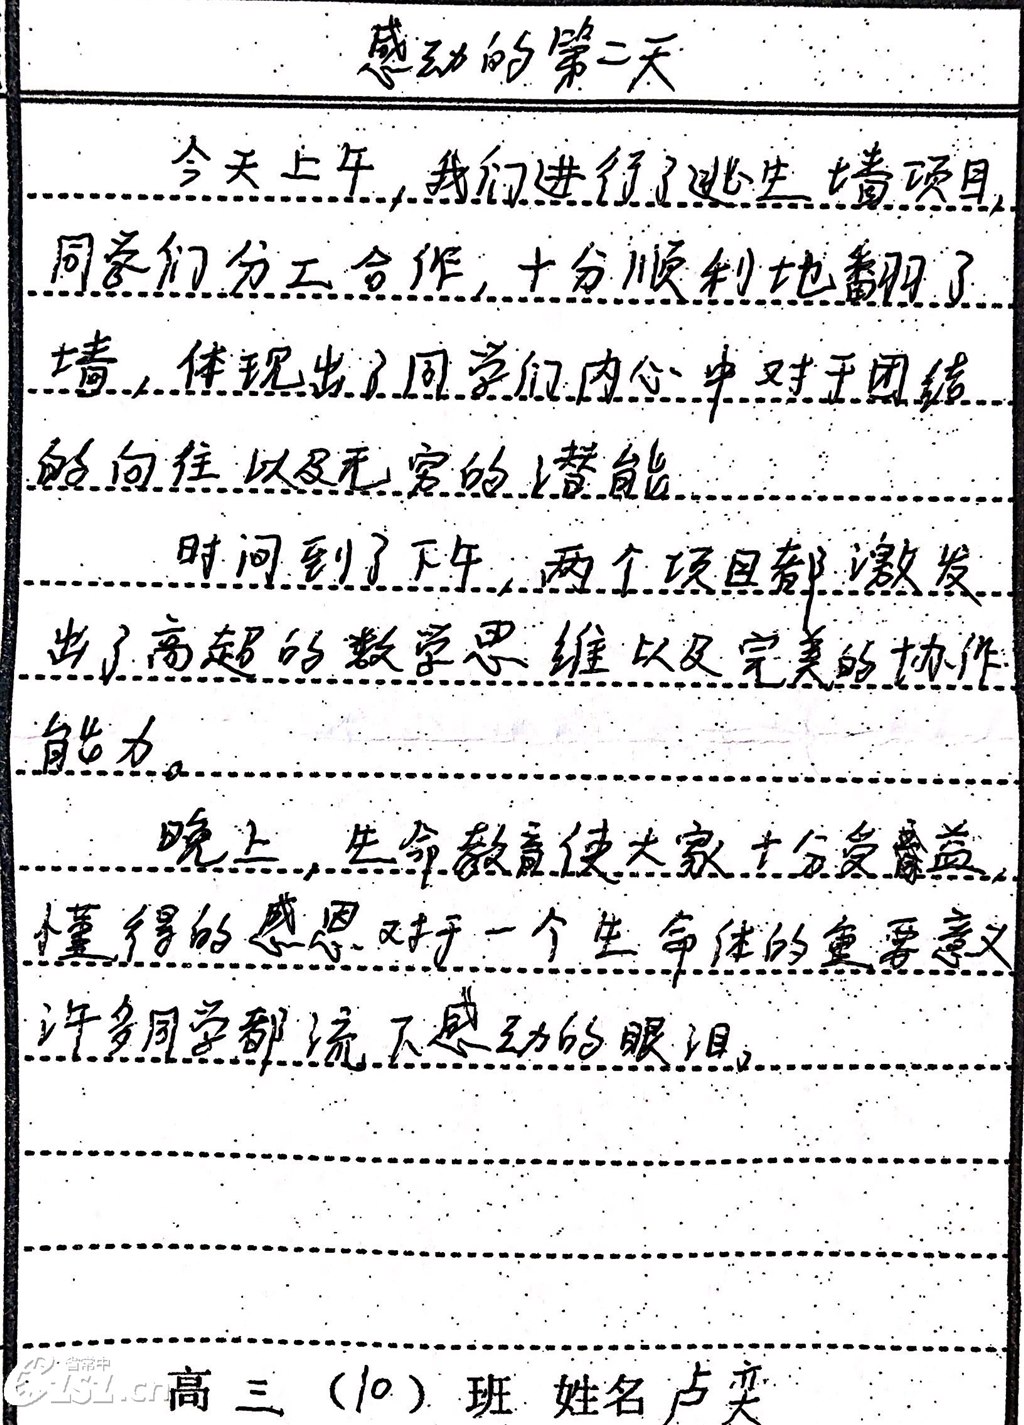 感动的第二天
今天上午,我们进行了逃生墙项目,
同学们分工合作,十分顺利地翻了
墙,体现出了同学们内心中对于团结
的向往以及无穷的潜能
时间到了下午,两个项目都激发
出了高超的数学思维以及完美的协作
能力。
晚上,生命教育使大家十分受益,
懂得的感恩对于一个生命体的重要意义
许多同学都流下感动的眼泪。
高三(10)班 姓名卢奕
省常中
LSL.cn